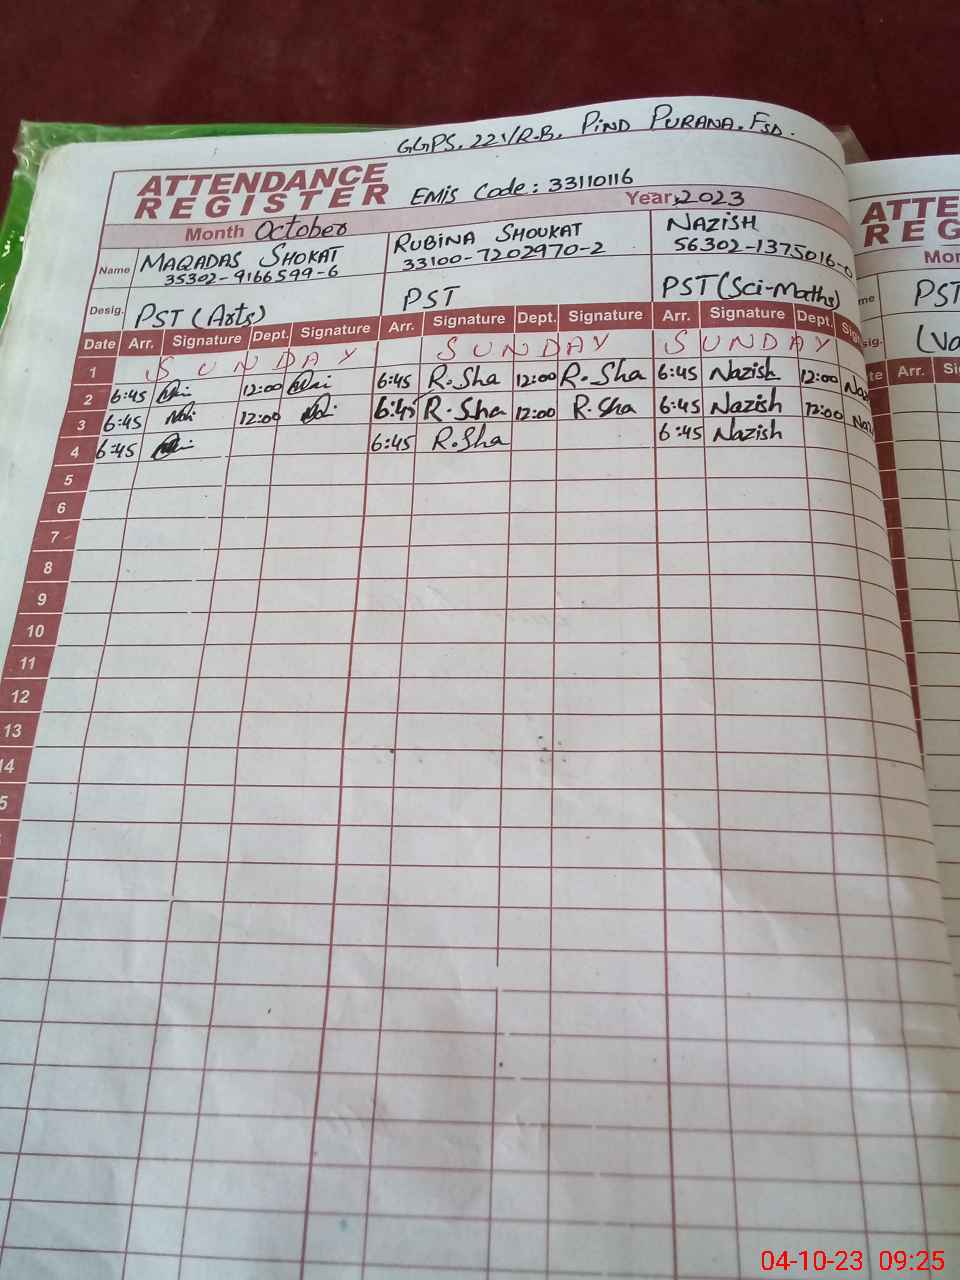 GGPS, 221/R.B. PIND PURANA. FSD.
ATTENDANCE
REGISTER
EMIS Code: 33110116
Month October Year 2023
Name MAQADAS SHOKAT RUBINA SHOUKAT NAZISH
35302-9166599-6 33100-7202970-2 56302-1375016-0
Desig. PST (Arts) PST PST (Sci-Maths)
Date Arr. Signature Dept. Signature Arr. Signature Dept. Signature Arr. Signature Dept.
1 SUNDAY SUNDAY SUNDAY
2 6:45 12:00 6:45 R.Sha 12:00 R.Sha 6:45 Nazish 12:00
3 6:45 12:00 6:45 R.Sha 12:00 R.Sha 6:45 Nazish 12:00
4 6:45 6:45 R.Sha 6:45 Nazish
5
6
7
8
9
10
11
12
13
14
ATTE
REG
PST
Arr.
04-10-23 09:25